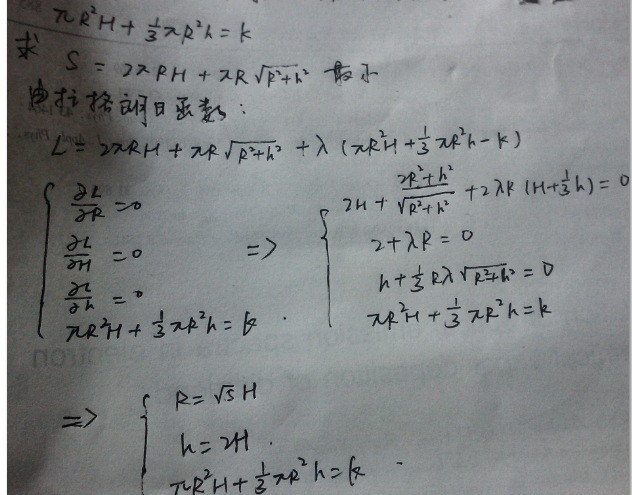 πR²H + 1/3 πR²h = k
求 S = 2πRH + πR√(R²+h²) 最小
由拉格朗日函数:
L = 2πRH + πR√(R²+h²) + λ(πR²H + 1/3 πR²h - k)
{ ∂L/∂R = 0
∂L/∂H = 0
∂L/∂h = 0
πR²H + 1/3 πR²h = k
=> { 2H + (2R²+h²)/√(R²+h²) + 2λR(H + 1/3 h) = 0
2 + λR = 0
h + 1/3 Rλ√(R²+h²) = 0
πR²H + 1/3 πR²h = k
=> { R = √5 H
h = 2H.
πR²H + 1/3 πR²h = k